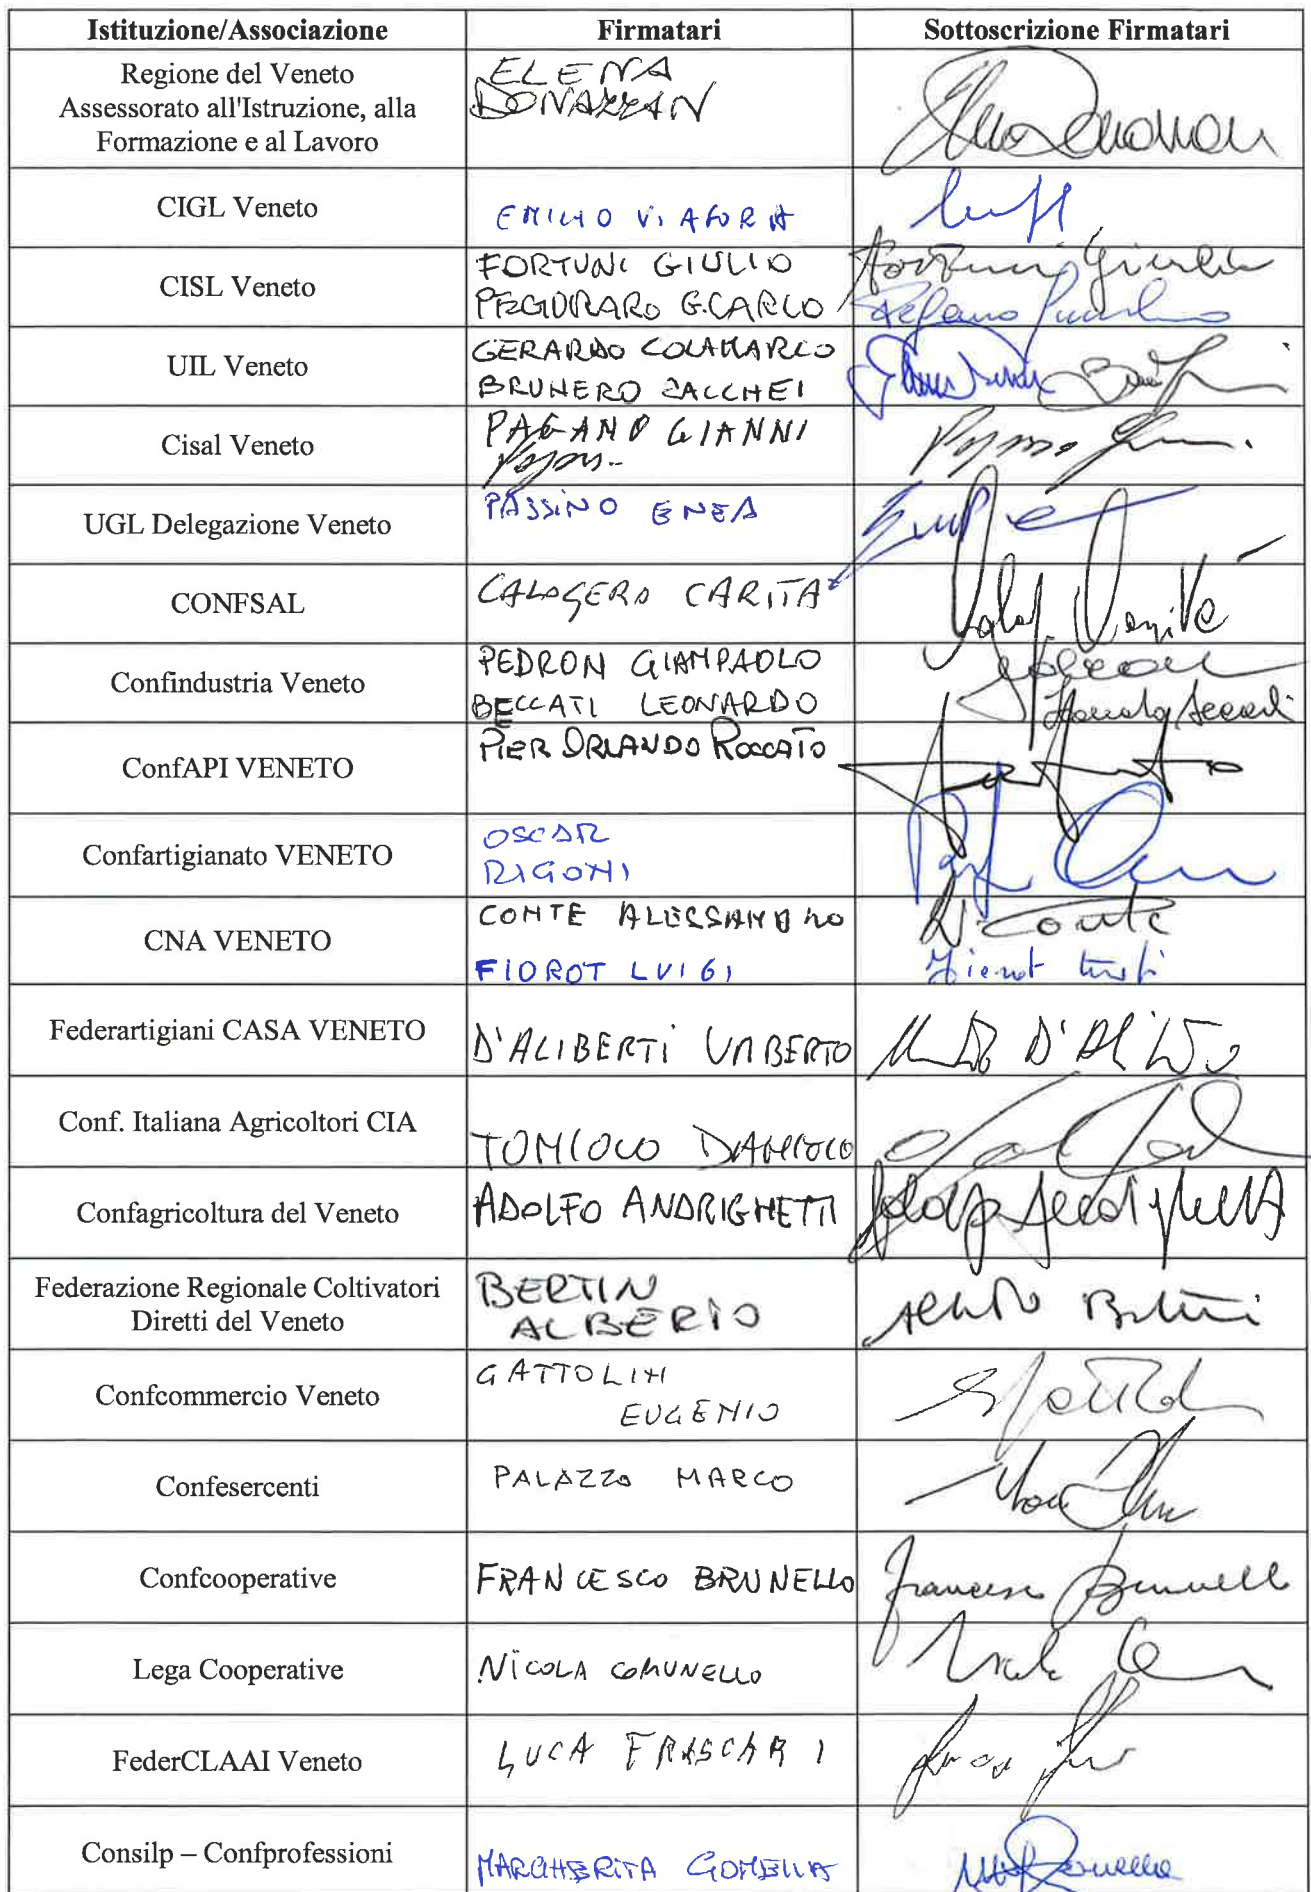 Istituzione/Associazione Firmatari Sottoscrizione Firmatari
Regione del Veneto
Assessorato all'Istruzione, alla
Formazione e al Lavoro
ELENA
DONAZZAN
CIGL Veneto
EMILIO VIAFORA
CISL Veneto
FORTUNI GIULIO
PEGORARO G.CARLO
Fortuni Giulio
UIL Veneto
GERARDO COLAMARCO
BRUNERO ZACCHEI
Cisal Veneto
PAGANO GIANNI
UGL Delegazione Veneto
PASSINO ENEA
CONFSAL
CALOGERO CARITA'
Confindustria Veneto
PEDRON GIAMPAOLO
BECCATI LEONARDO
ConfAPI VENETO
PIER ORLANDO ROCCATO
Confartigianato VENETO
OSCAR
RIGONI
CNA VENETO
CONTE ALESSANDRO
FIOROT LUIGI
Conte
Fiorot Luigi
Federartigiani CASA VENETO
D'ALIBERTI UMBERTO
Conf. Italiana Agricoltori CIA
Confagricoltura del Veneto
ADOLFO ANDRIGHETTI
Federazione Regionale Coltivatori
Diretti del Veneto
BERTIN
ALBERTO
Confcommercio Veneto
GATTOLIN
EUGENIO
Confesercenti
PALAZZO MARCO
Confcooperative
FRANCESCO BRUNELLO
Francesco Brunello
Lega Cooperative
NICOLA COMUNELLO
FederCLAAI Veneto
LUCA FRASCARI
Consilp – Confprofessioni
MARGHERITA GOMELLA